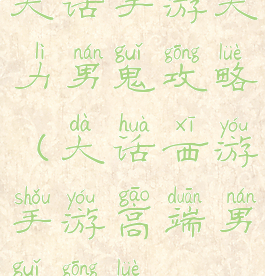 大话手游大
lì nán guǐ gōng lüè
力男鬼攻略
dà huà xī yóu
(大话西游
shǒu yóu gāo duān nán
手游高端男
guǐ gōng lüè